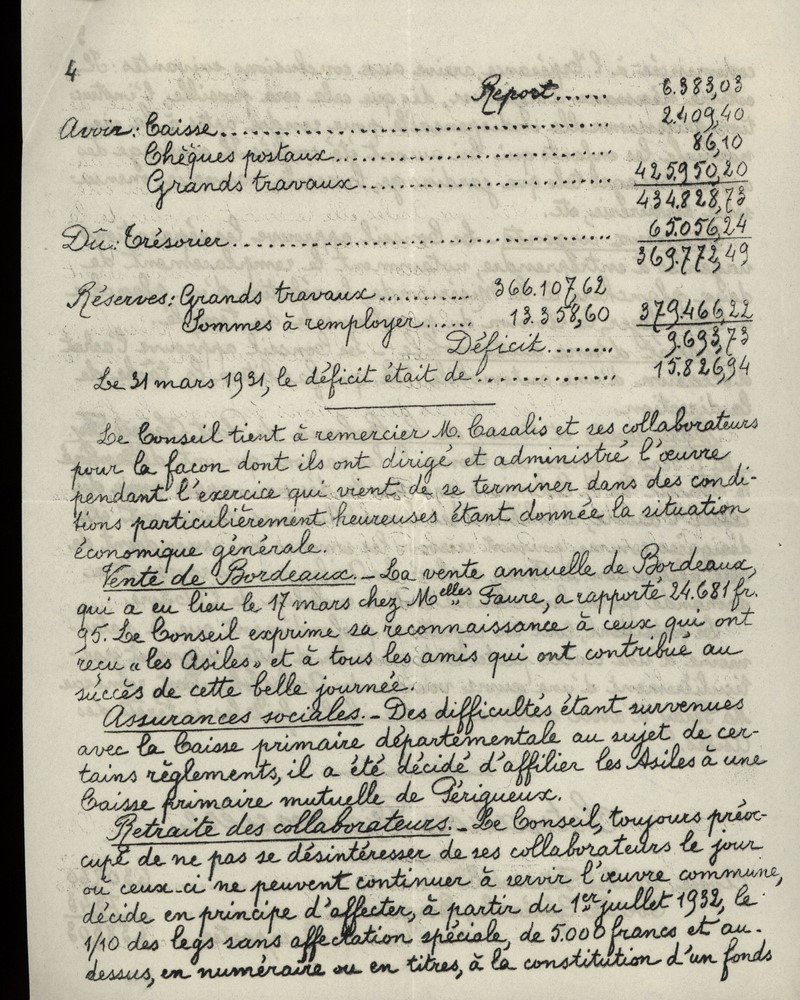 4
Report...... 6.383,03
Avoir: Caisse........................ 2.409,40
Chèques postaux........................ 86,10
Grands travaux........................ 425.950,20
434.828,73
Dû: Trésorier........................ 65.056,24
369.772,49
Réserves: Grands travaux.......... 366.107,62
Sommes à remployer...... 13.358,60 379.466,22
Déficit........ 9.693,73
Le 31 mars 1931, le déficit était de............... 15.826,94
Le Conseil tient à remercier M. Casalis et ses collaborateurs
pour la façon dont ils ont dirigé et administré l'œuvre
pendant l'exercice qui vient de se terminer dans des condi-
tions particulièrement heureuses étant donnée la situation
économique générale.
Vente de Bordeaux. - La vente annuelle de Bordeaux,
qui a eu lieu le 17 mars chez Melles Faure, a rapporté 24.681 fr.
95. Le Conseil exprime sa reconnaissance à ceux qui ont
reçu « les Asiles » et à tous les amis qui ont contribué au
succès de cette belle journée.
Assurances sociales. - Des difficultés étant survenues
avec la Caisse primaire départementale au sujet de cer-
tains règlements, il a été décidé d'affilier les Asiles à une
Caisse primaire mutuelle de Périgueux.
Retraite des collaborateurs. - Le Conseil, toujours préoc-
cupé de ne pas se désintéresser de ses collaborateurs le jour
où ceux-ci ne peuvent continuer à servir l'œuvre commune,
décide en principe d'affecter, à partir du 1er juillet 1932, le
1/10 des legs sans affectation spéciale, de 5.000 francs et au-
dessus, en numéraire ou en titres, à la constitution d'un fonds